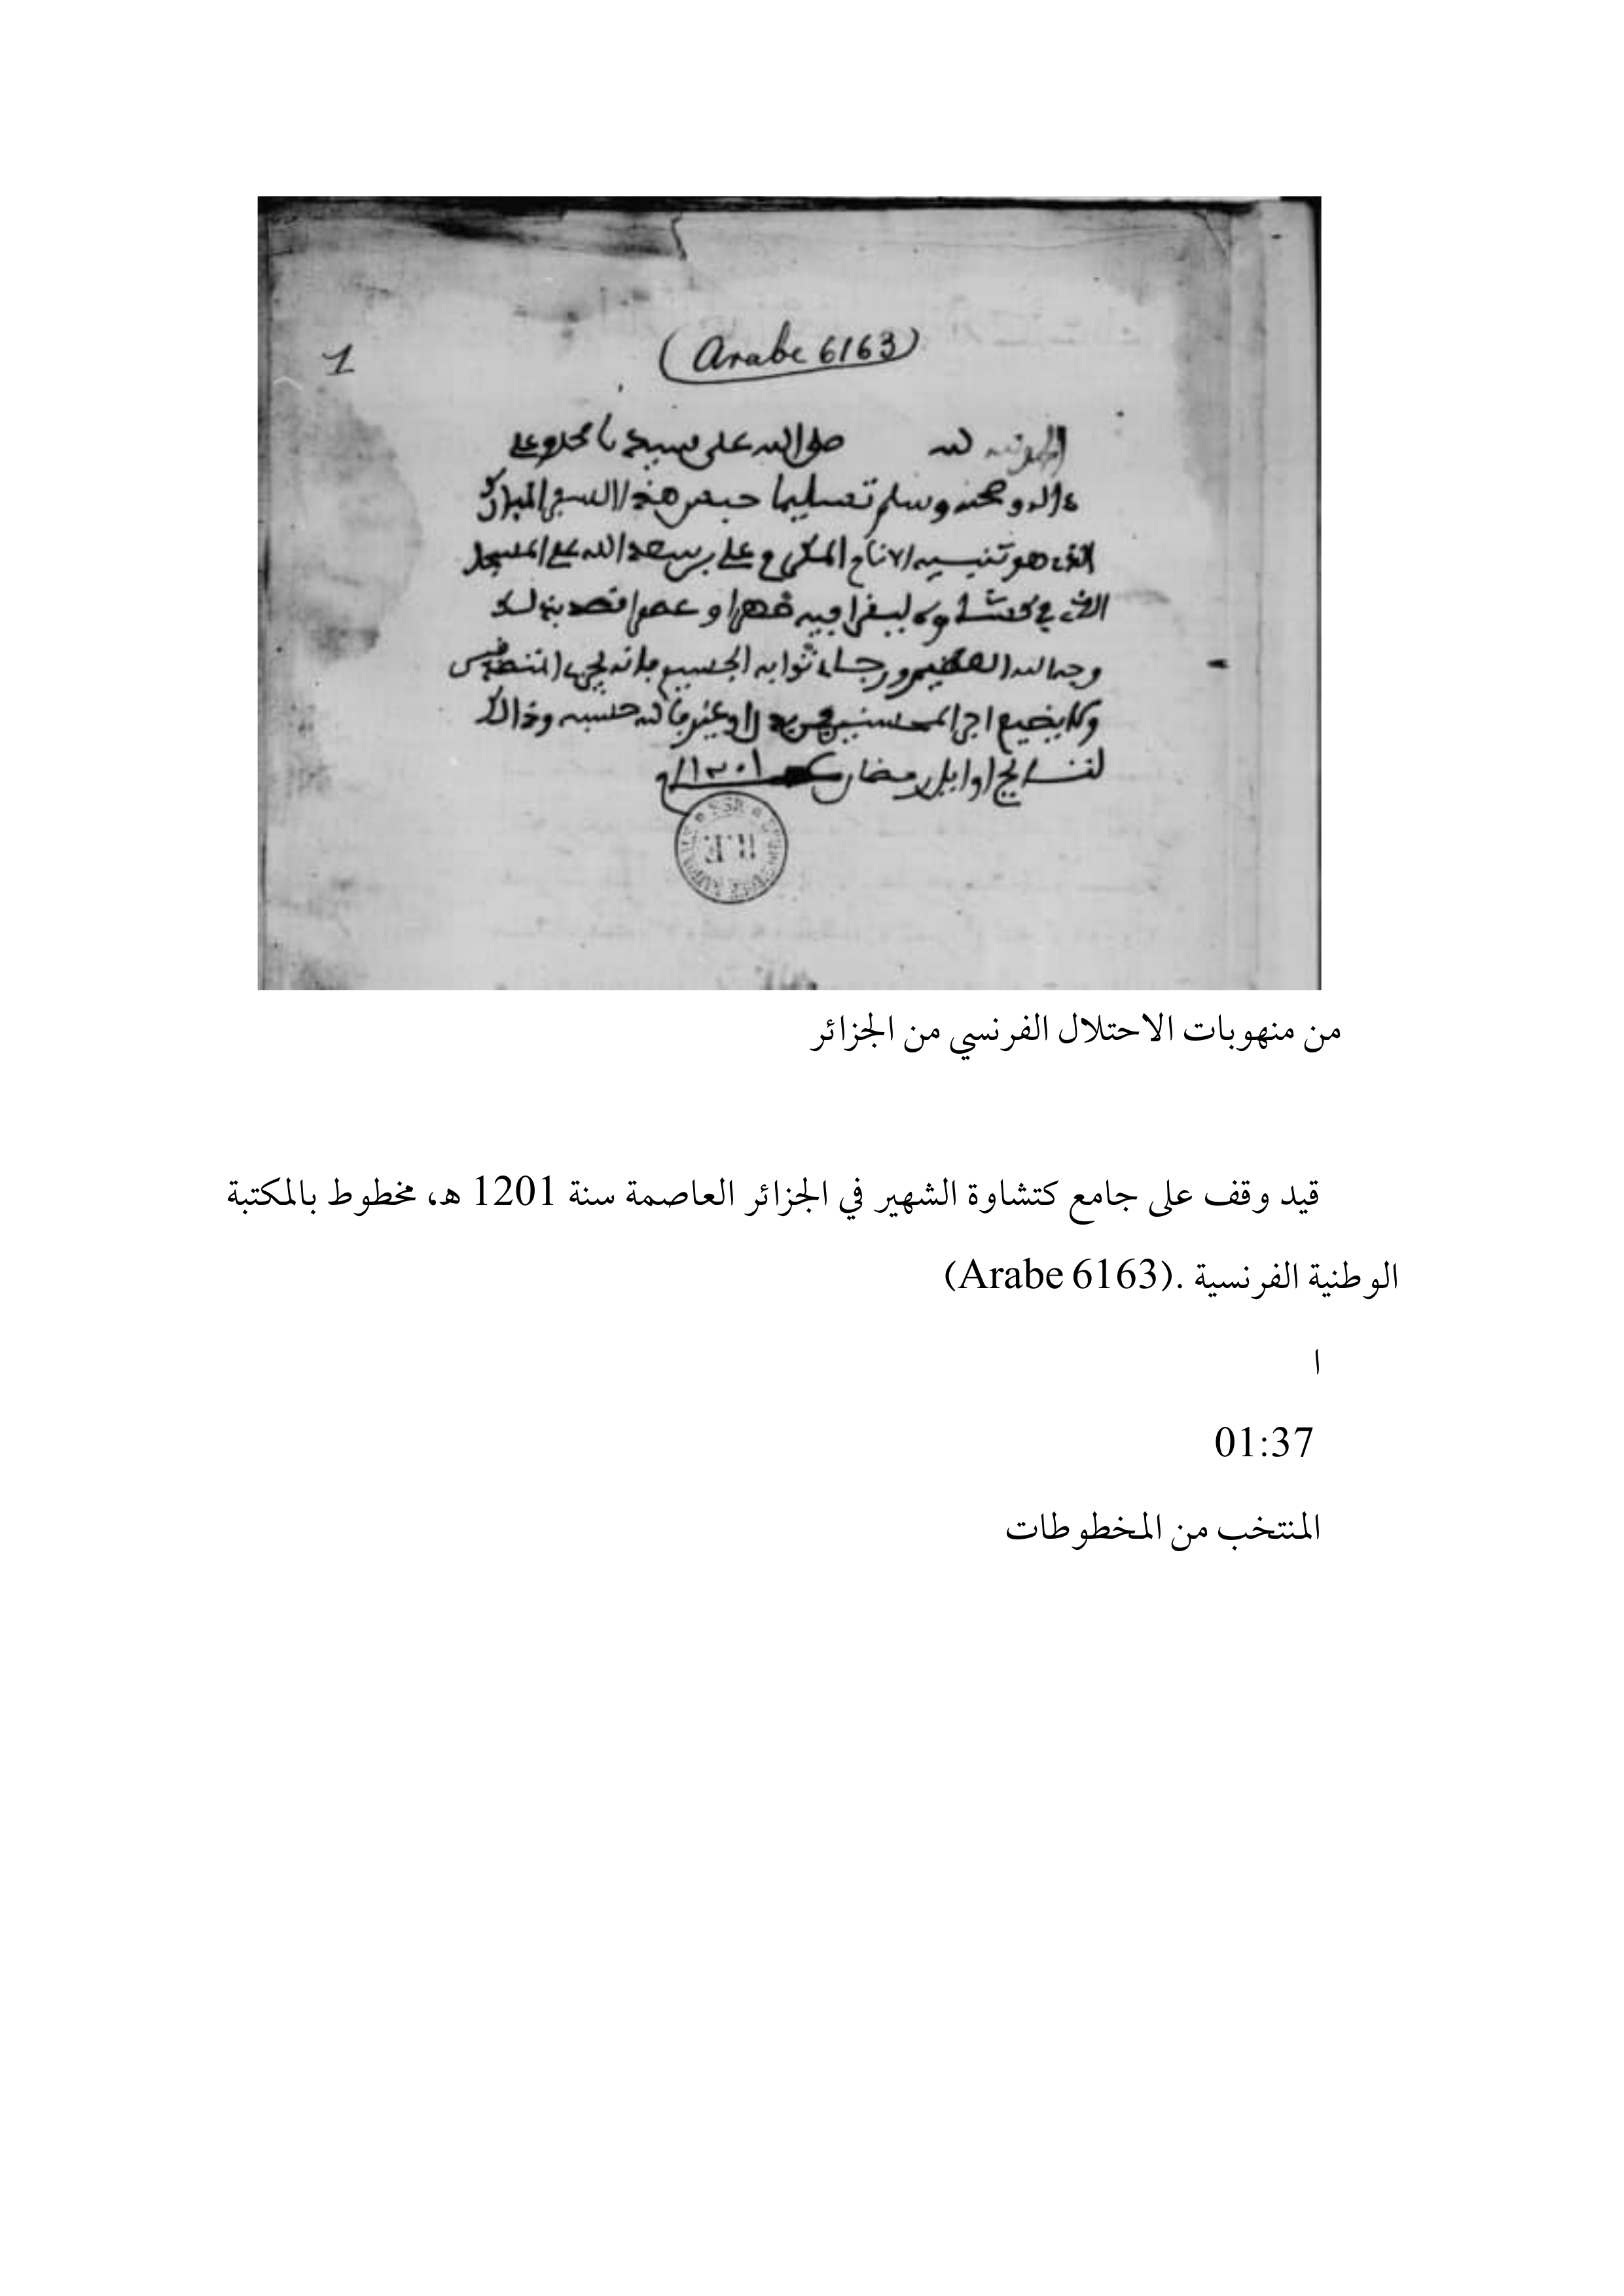 1
(Arabe 6163)
الحمد لله صلى الله على سيدنا محمد وعلى
ءاله وصحبه وسلم تسليما حبس هذا السفر المبارك
الذي هو تنبيه الانام المكرم علي بن سعد الله على المسجد
الذي في كتشاوة ليقرا فيه ظهرا وعصرا قصد بذلك
وجه الله العظيم ورجاء ثوابه الجسيم فانه يجزي المتصدقين
ولا يضيع اجر المحسنين فمن بدل او غير فالله حسيبه وذالك
بتاريخ اوايل رمضان 1201
من منهوبات الاحتلال الفرنسي من الجزائر
قيد وقف على جامع كتشاوة الشهير في الجزائر العاصمة سنة 1201 هـ، مخطوط بالمكتبة
الوطنية الفرنسية .(Arabe 6163)
ا
01:37
المنتخب من المخطوطات